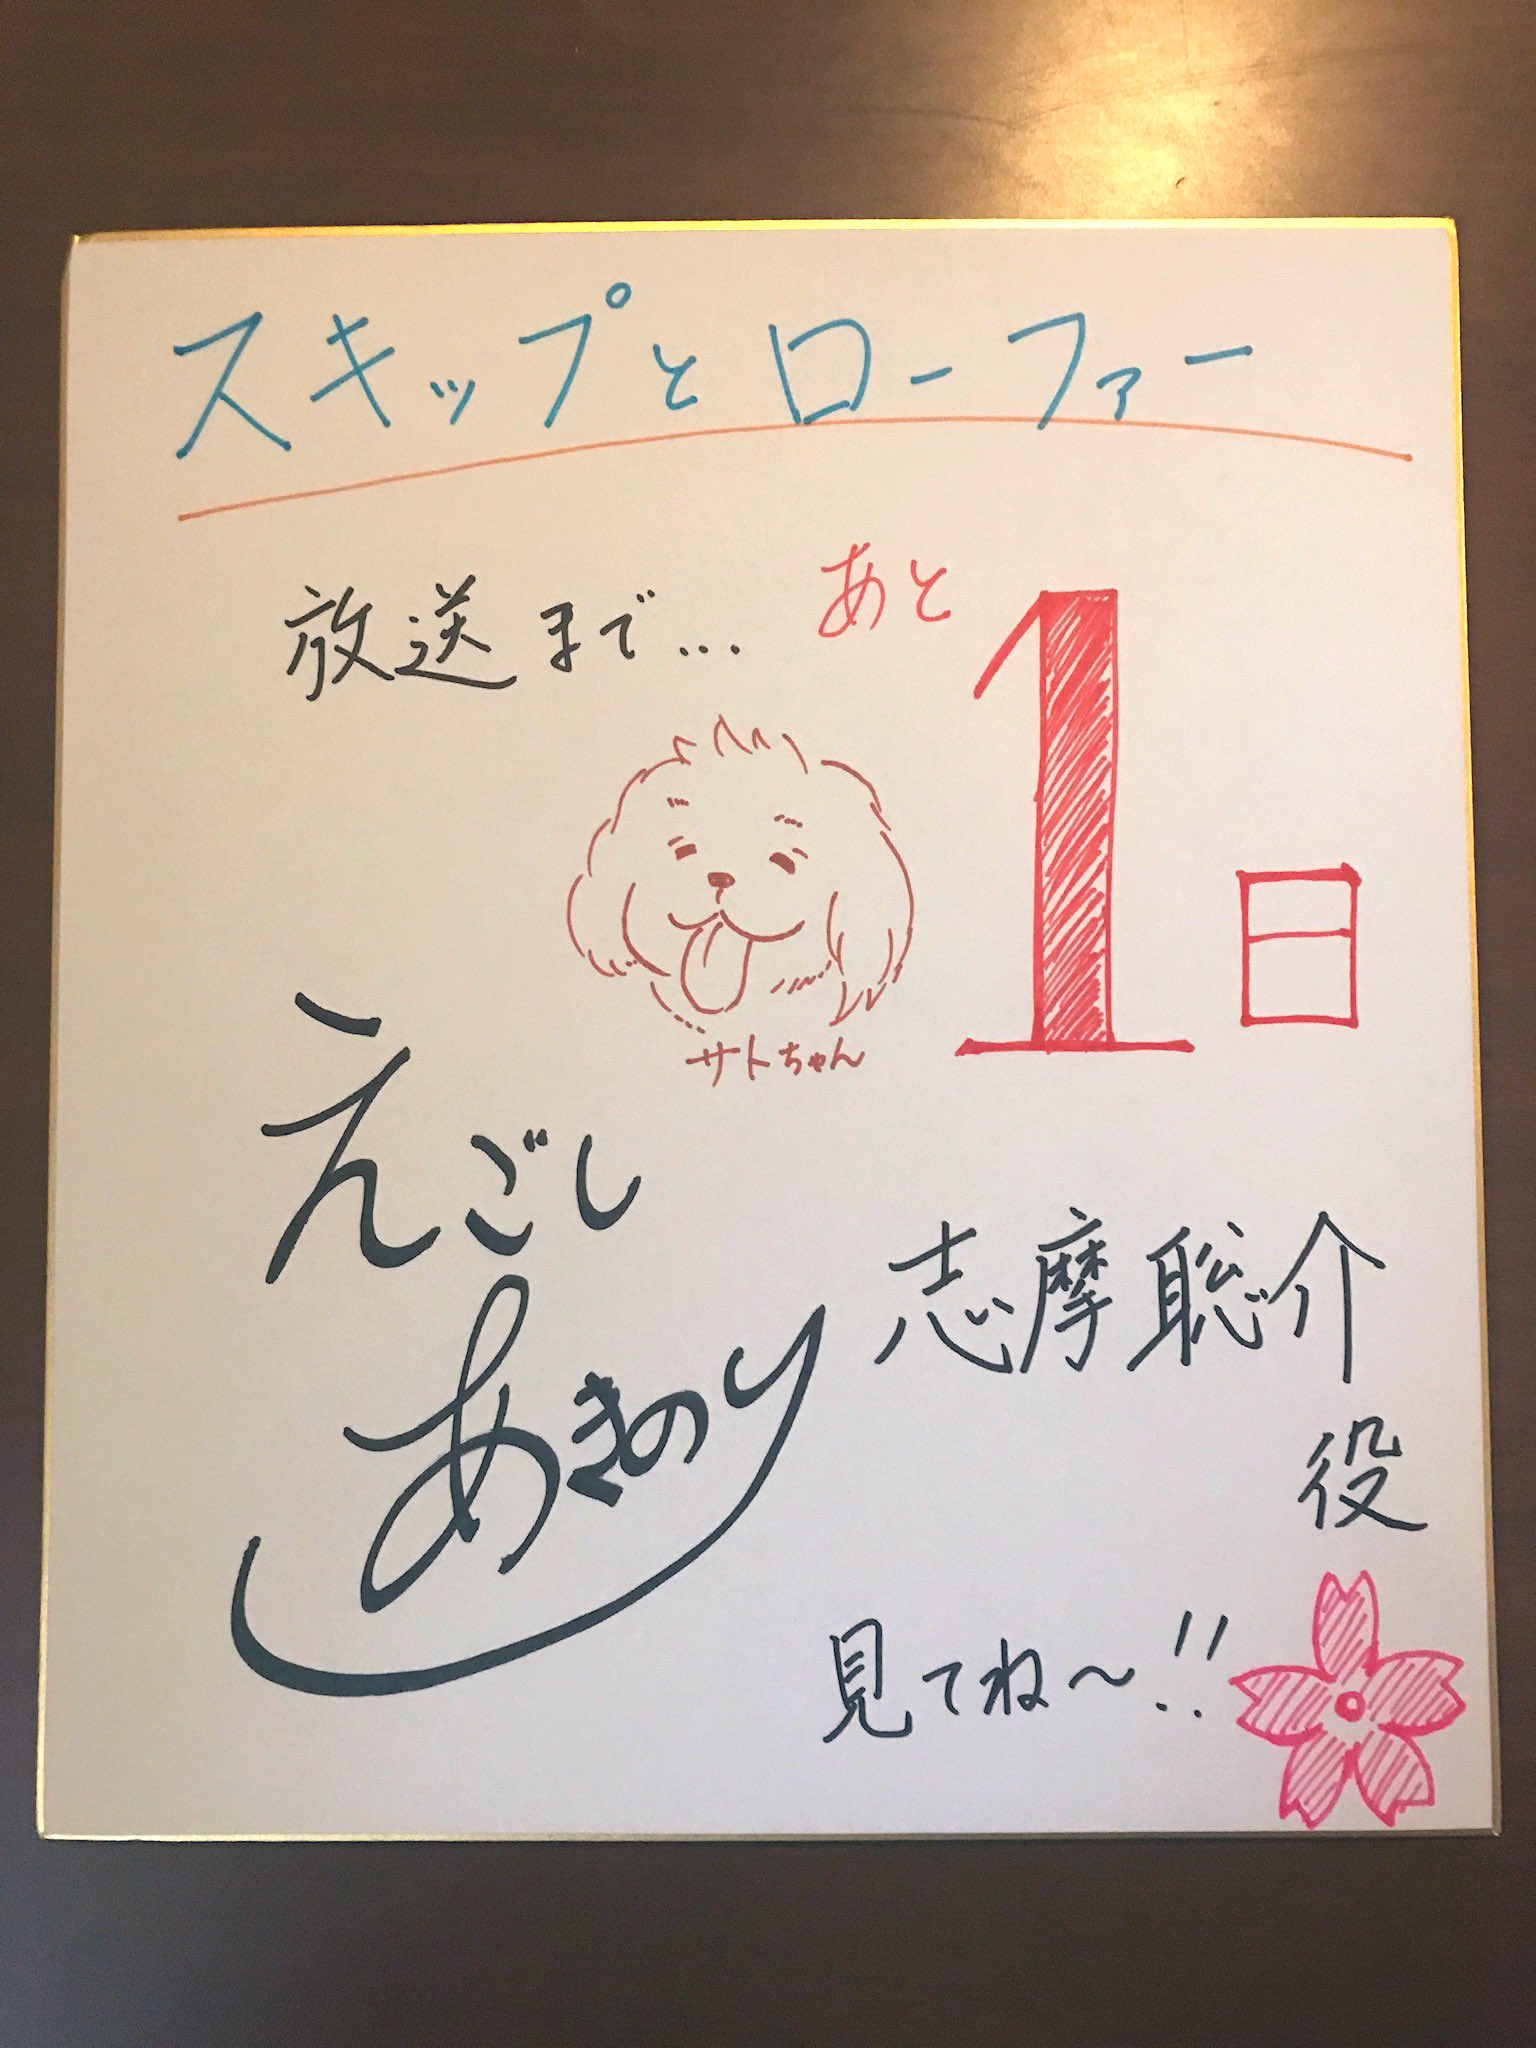 スキップとローファー
放送まで... あと
1日
サトちゃん
えごし
あきのり
志摩聡介
役
見てね〜!!